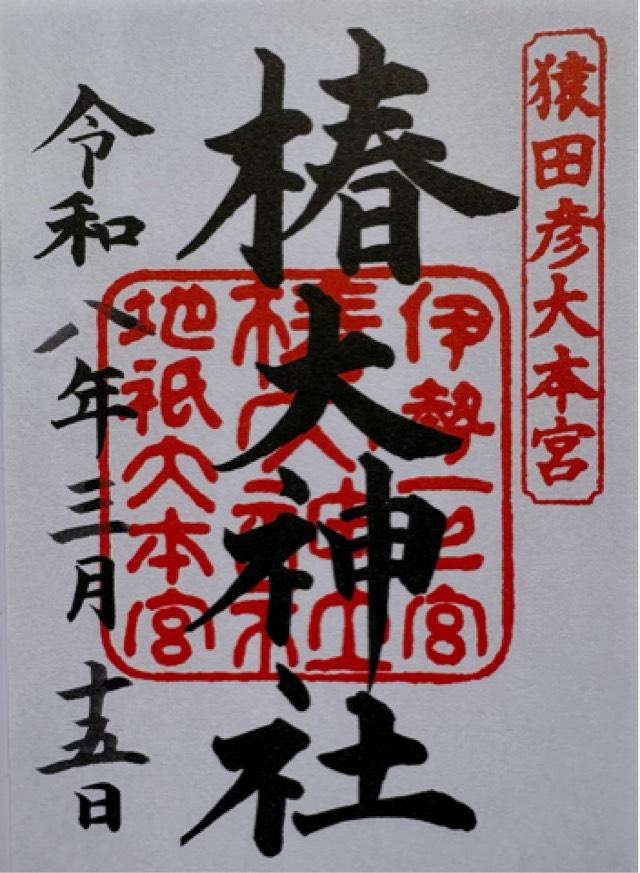 猿田彦大本宮
椿大神社
伊勢一之宮
椿大神社
地祇大本宮
令和八年三月十五日